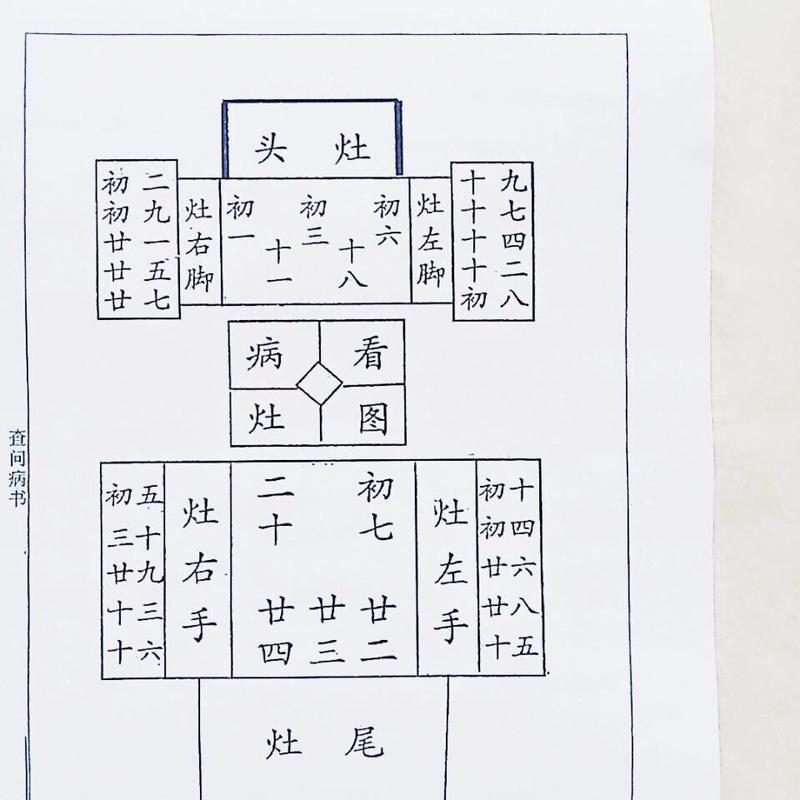 头 灶
初二
初九
廿一
廿五
廿七
灶右脚
初一
十一
初三
十八
初六
灶左脚
十九
十七
十四
十二
初八
病 看
灶 图
查问病书
初五
三十
廿九
十三
十六
灶右手
二十
初七
廿四
廿三
廿二
灶左手
初十
初四
廿六
廿八
十五
灶 尾